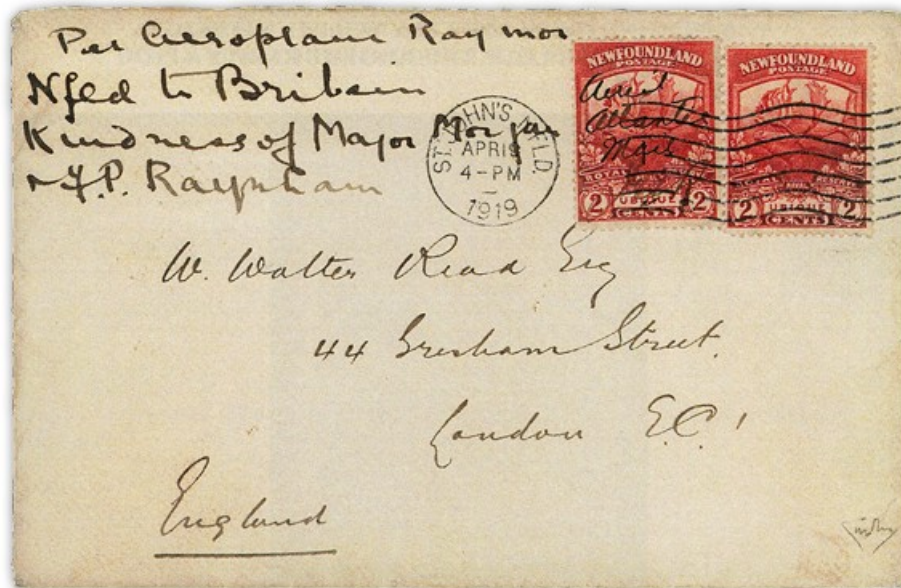 Per Aeroplane Raymor
Nfld to Britain
Kindness of Major Morgan
& F.P. Raynham
ST. JOHN'S N'F'LD.
APR 19
4-PM
1919
NEWFOUNDLAND
POSTAGE
Aerial
Atlantic
Mail
ROYAL
UBIQUE
2 CENTS 2
NEWFOUNDLAND
POSTAGE
UBIQUE
2 CENTS 2
W. Walter Read Esq
44 Gresham Street.
London E.C.1
England